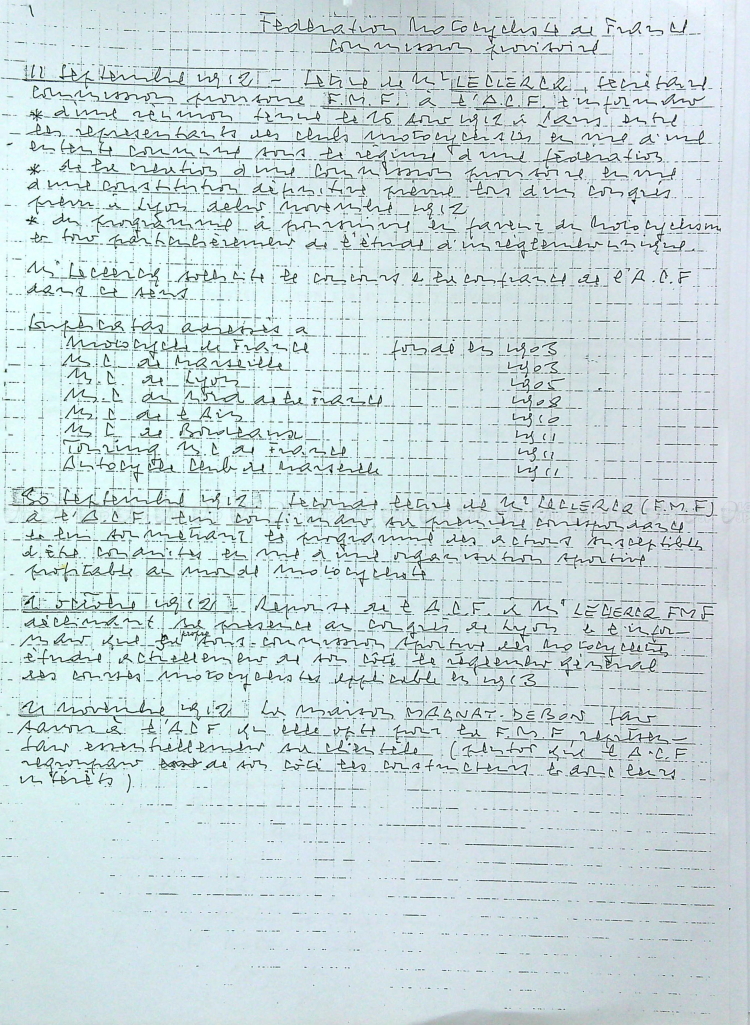 1
Fédération Motocycliste de France
Commission provisoire
11 Septembre 1912 - Lettre de Mr LECLERCQ, secrétaire
commission provisoire F.M.F. à l'A.C.F. l'informant
* d'une réunion tenue le 16 août 1912 à Paris entre
les représentants des clubs motocyclistes en vue d'une
entente commune sous le régime d'une fédération
* de la création d'une commission provisoire en vue
d'une constitution définitive prévue lors d'un congrès
prévu à Lyon début novembre 1912
* du programme à poursuivre en faveur du Motocyclisme
et tout particulièrement de l'étude d'un règlement unique.
Mr Leclercq sollicite le concours et la confiance de l'A.C.F
dans ce sens
Duplicatas adressés à
Motocycle de France fondé en 1903
M.C. de Marseille 1903
M.C de Lyon 1905
M.C du Nord de la France 1908
M C de l'Ain 1910
M C de Bordeaux 1911
Touring M.C de France 1911
Autocycle Club de Marseille 1911
30 Septembre 1912 Seconde lettre de Mr LECLERCQ (F.M.F)
à l'A.C.F. lui confirmant sa première correspondance
et lui soumettant le programme des actions susceptibles
d'être conduites en vue d'une organisation sportive
profitable au monde motocycliste
2 octobre 1912 - Réponse de l'A.C.F. à Mr LECLERCQ FMF
déclinant sa présence au congrès de Lyon et l'infor-
mant que sa propre sous-commission sportive des motocyclettes
étudie actuellement de son côté le règlement général
des courses motocyclistes applicable en 1913
21 novembre 1912 La maison MAGNAT-DEBON fait
savoir à l'ACF qu'elle opte pour la F.M.F représen-
tant essentiellement sa clientèle (plutôt que l'A.C.F
regroupant de son côté les constructeurs et donc leurs
intérêts)